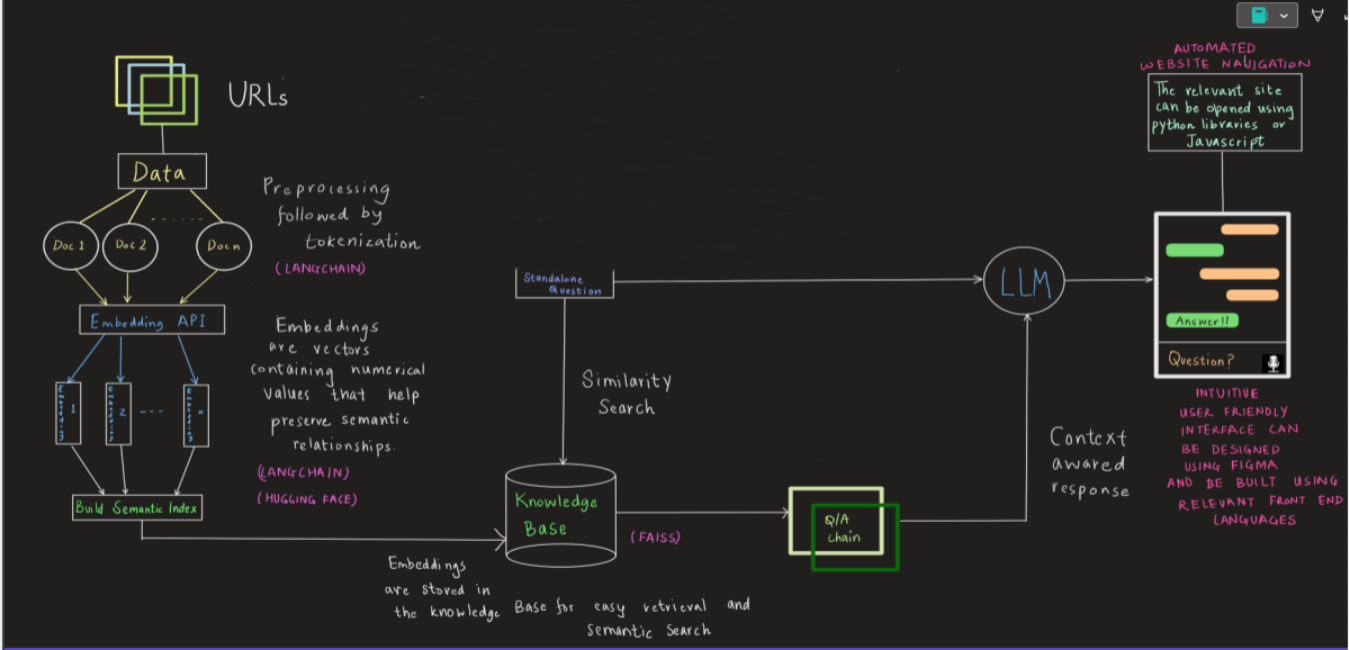 URLs
Data
Doc 1
Doc 2
Doc n
Preprocessing
followed by
tokenization
(LANGCHAIN)
Embedding API
Embeddings
are vectors
containing numerical
values that help
preserve semantic
relationships.
(LANGCHAIN)
(HUGGING FACE)
1
2
n
Build Semantic Index
Standalone
Question
Similarity
Search
Knowledge
Base
(FAISS)
Embeddings
are stored in
the knowledge Base for easy retrieval and
semantic search
Q/A
chain
LLM
Context
awared
response
AUTOMATED
WEBSITE NAVIGATION
The relevant site
can be opened using
python libraries or
Javascript
Answer!!
Question?
INTUITIVE
USER FRIENDLY
INTERFACE CAN
BE DESIGNED
USING FIGMA
AND BE BUILT USING
RELEVANT FRONT END
LANGUAGES